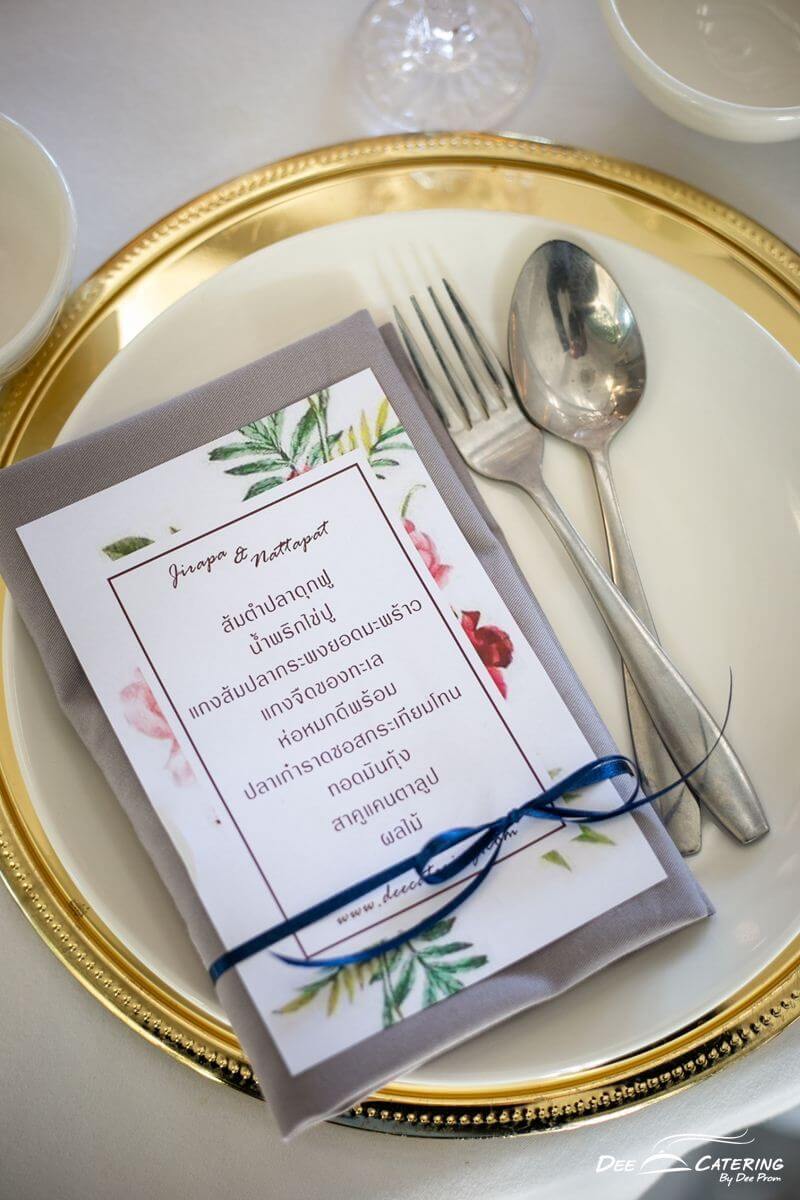 Jirapa & Nattapat
ส้มตำปลาดุกฟู
น้ำพริกไข่ปู
แกงส้มปลากระพงยอดมะพร้าว
แกงจืดของทะเล
ห่อหมกดีพร้อม
ปลาเก๋าราดซอสกระเทียมโทน
ทอดมันกุ้ง
สาคูแคนตาลูป
ผลไม้
www.deecatering.com
DEE CATERING
By Dee Prom